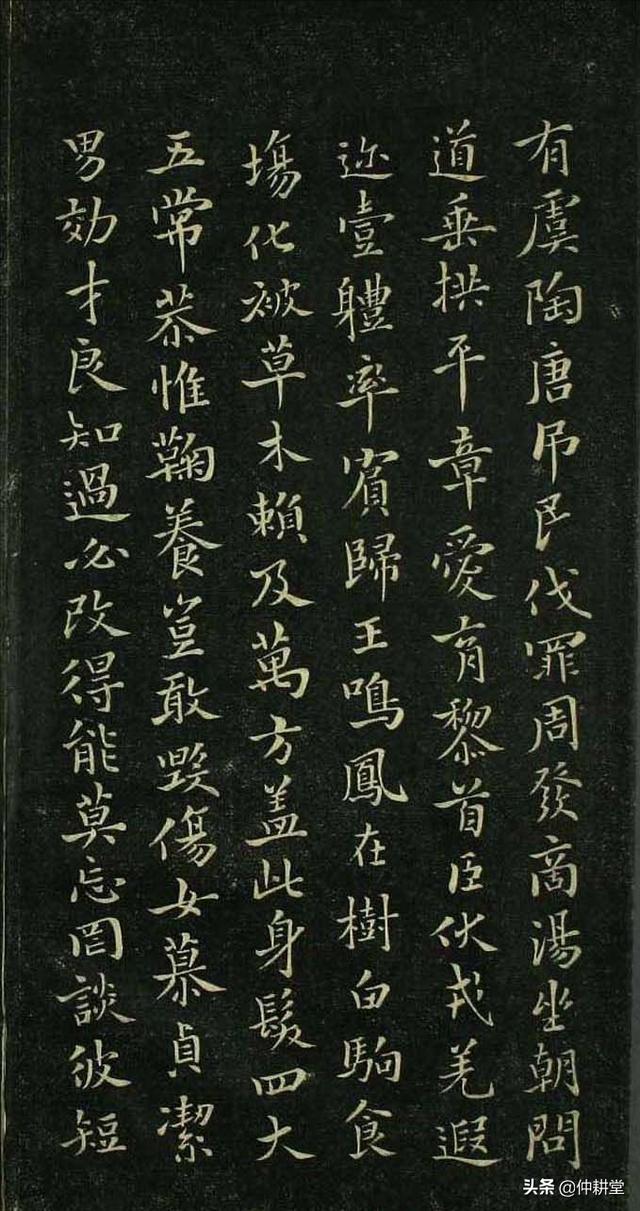 有虞陶唐吊民伐罪周發商湯坐朝問
道垂拱平章愛育黎首臣伏戎羌遐
迩壹軆率賓歸王鳴鳳在樹白駒食
塲化被草木賴及萬方盖此身髮四大
五常恭惟鞠養豈敢毀傷女慕貞潔
男効才良知過必改得能莫忘罔談彼短
头条 @仲耕堂